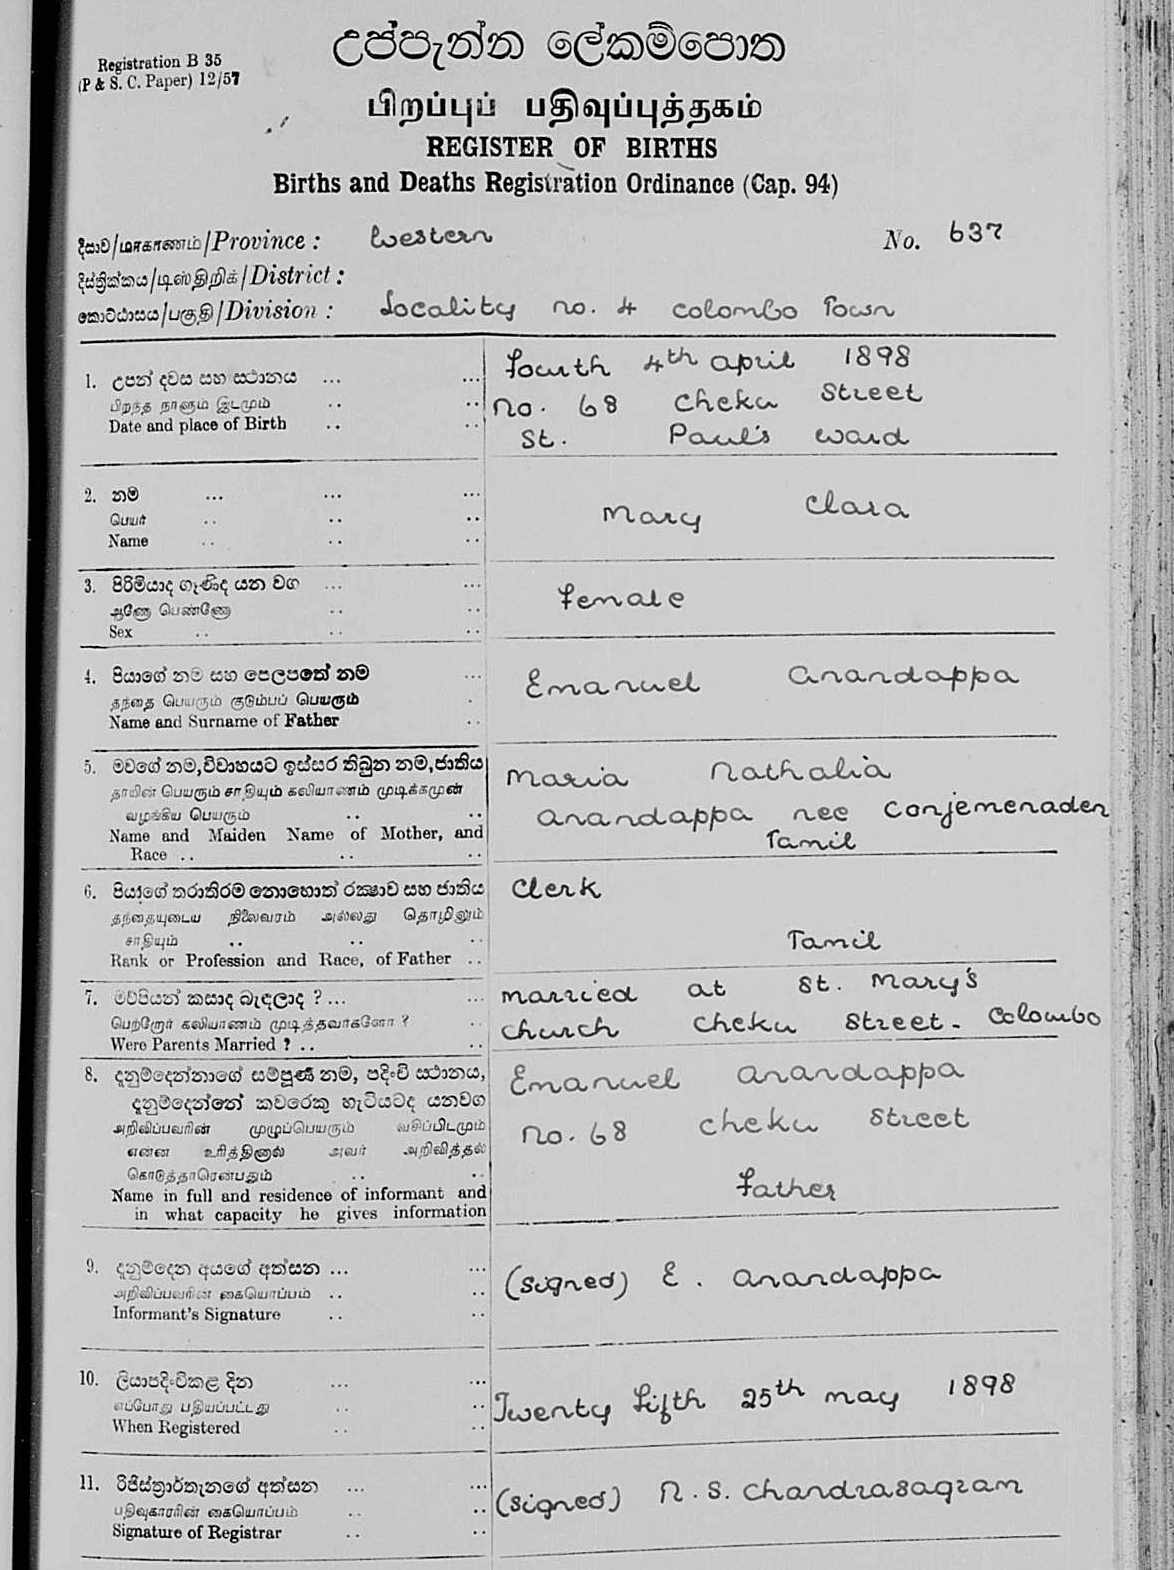 Registration B 35
(P & S. C. Paper) 12/57
උප්පැන්න ලේකම්පොත
பிறப்புப் பதிவுப்புத்தகம்
REGISTER OF BIRTHS
Births and Deaths Registration Ordinance (Cap. 94)
දිසාව/மாகாணம்/Province : Western No. 637
දිස්ත්‍රික්කය/டிஸ்திறிக்/District :
කොට්ඨාසය/பகுதி/Division : Locality no. 4 Colombo Town
1. උපන් දවස සහ ස්ථානය ... ...
பிறந்த நாளும் இடமும் .. ..
Date and place of Birth .. ..
Fourth 4th april 1898
no. 68 Cheku Street
St. Paul's ward
2. නම ... ... ...
பெயர் .. .. ..
Name .. .. ..
Mary Clara
3. පිරිමියාද ගැණිද යන වග ... ...
ஆணோ பெண்ணோ .. ..
Sex .. .. ..
Female
4. පියාගේ නම සහ පෙලපතේ නම ...
தந்தை பெயரும் குடும்பப் பெயரும் .
Name and Surname of Father ..
Emanuel Anandappa
5. මවගේ නම, විවාහයට ඉස්සර තිබුන නම, ජාතිය
தாயின் பெயரும் சாதியும் கலியாணம் முடிக்கமுன்
வழங்கிய பெயரும் .. ..
Name and Maiden Name of Mother, and
Race .. .. ..
Maria Nathalia
Anandappa nee Conjemenaden
Tamil
6. පියාගේ තරාතිරම නොහොත් රක්ෂාව සහ ජාතිය
தந்தையுடைய நிலைவரம் அல்லது தொழிலும்
சாதியும் .. .. ..
Rank or Profession and Race, of Father ..
Clerk
Tamil
7. මව්පියන් කසාද බැඳලාද ? ... ...
பெற்றோர் கலியாணம் முடித்தவர்களோ ? ..
Were Parents Married ? .. ..
Married at St. Mary's
Church Cheku Street - Colombo
8. දැනුම්දෙන්නාගේ සම්පූර්ණ නම, පදිංචි ස්ථානය,
දැනුම්දෙන්නේ කවරෙකු හැටියටද යනවග
அறிவிப்பவரின் முழுப்பெயரும் வசிப்பிடமும்
என்ன உரித்தினால் அவர் அறிவித்தல்
கொடுத்தாரென்பதும் .. ..
Name in full and residence of informant and
in what capacity he gives information
Emanuel Anandappa
no. 68 Cheku Street
Father
9. දැනුම්දෙන අයගේ අත්සන ... ...
அறிவிப்பவரின் கையொப்பம் .. ..
Informant's Signature .. ..
(signed) E. Anandappa
10. ලියාපදිංචිකළ දින ... ...
எப்போது பதியப்பட்டது .. ..
When Registered .. ..
Twenty Fifth 25th May 1898
11. රිජිස්ත්‍රාර්තැනගේ අත්සන ... ...
பதிவுகாரரின் கையொப்பம் .. ..
Signature of Registrar .. ..
(signed) R. S. Chandrasagran